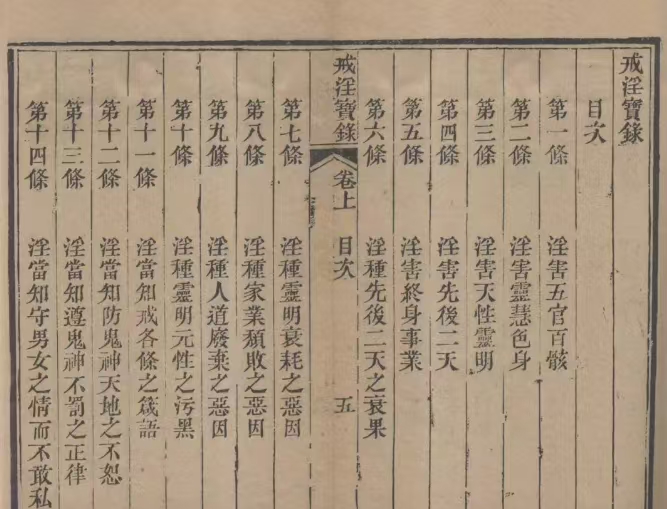 戒淫寶錄
目次
第一條 淫害五官百骸
第二條 淫害靈慧色身
第三條 淫害天性靈明
第四條 淫害先後二天
第五條 淫害終身事業
第六條 淫種先後二天之衰果
戒淫寶錄 卷上 目次 五
第七條 淫種靈明衰耗之惡因
第八條 淫種家業頹敗之惡因
第九條 淫種人道廢棄之惡因
第十條 淫種靈明元性之污黑
第十一條 淫當知戒各條之箴語
第十二條 淫當知防鬼神天地之不恕
第十三條 淫當知遵鬼神不罰之正律
第十四條 淫當知守男女之情而不敢私